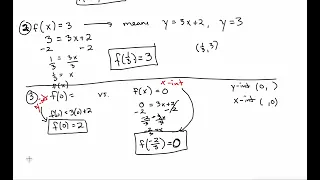 ② f(x) = 3 → means y = 3x+2, y = 3
3 = 3x+2
-2 -2
1/3 = 3x/3
1/3 = x
f(1/3) = 3
(1/3, 3)
③ f(0) = vs. f(x) = 0
x-int
y-int (0, )
x-int ( ,0)
f(0) = 3(0)+2
f(0) = 2
0 = 3x+2
-2 -2
-2/3 = 3x/3
-2/3 = x
f(-2/3) = 0